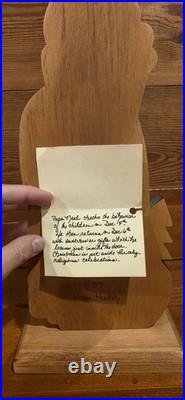 Papa Noel checks the behavior
of the children on Dec 4th
He then returns on Dec 6th
with switches or gifts which he
leaves just inside the door.
Christmas is set aside for only
religious celebrations.